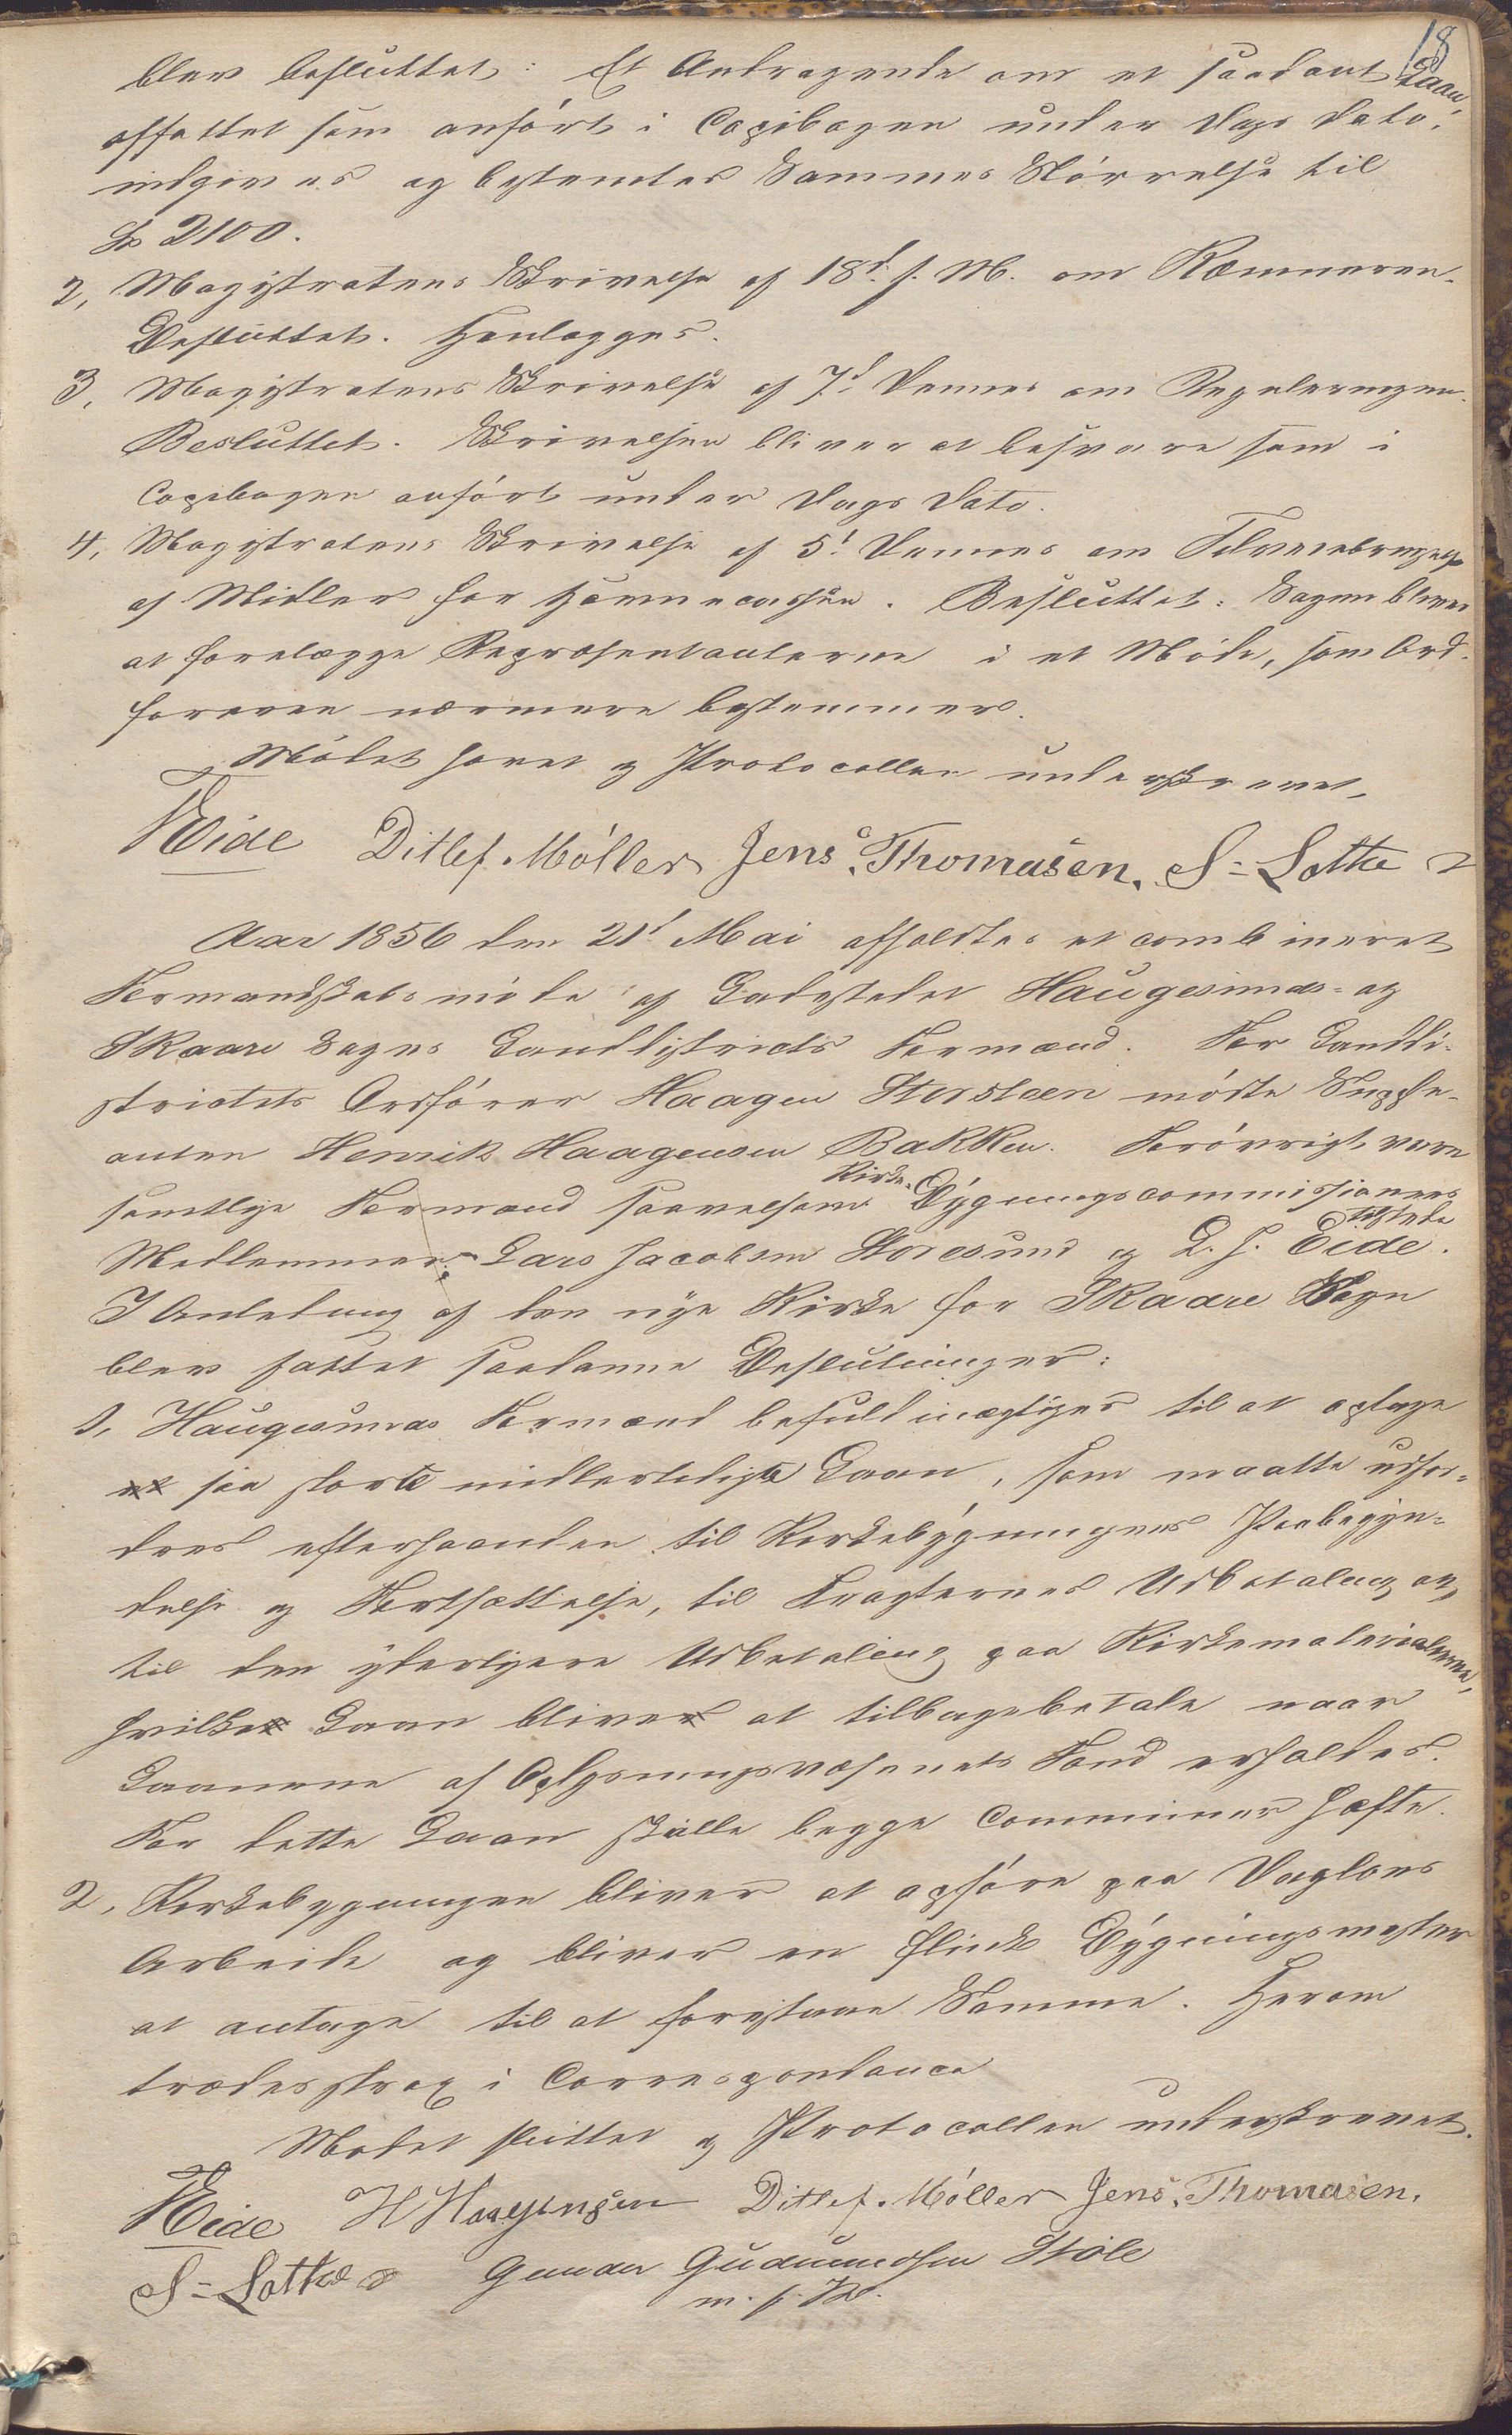 18
blev besluttet: Et Andragende om et saadant Laan,
affattet som anført i Copibogen under Dags Dato,
indgives og bestemtes Sammes Størrelse til
2100.
2, Magistratens Skrivelse af 18d. f. M. om Kæmneren.
Besluttet. Henlægges.
3, Magistratens Skrivelse af 7d. Dennes om Reguleringen.
Besluttet. Skrivelsen bliver at besvare som i
Copibogen anført under Dags Dato.
4, Magistratens Skrivelse af 5d. Dennes om Tilveiebringelse
af Midler for Havnecassen. Besluttet: Sagen bliver
at forelægge Repræsentanterne i et Møde, som Ord-
føreren nærmere bestemmer.
Mødet hævet og Protocollen underskrevet,
Eide Ditlef. Møller Jens. Thomasen. S= Lothe
Aar 1856 den 21d Mai afholdtes et combineret
Formandskabsmøde af Ladestedet Haugesunds- og
Skaare Sogns Landdistricts Formænd. For Landdi-
strictets Ordfører Haagen Storsteen mødte Supple-
anten Henrik Haagensen Bakken. Forøvrigt vare
samtlige Formænd saavelsom Kirke-Bygningscommissionens
Medlemmer Lars Jacobsen Storesund og L. J. Eide tilstede.
I Anledning af den nye Kirke for Skaare Sogn
blev fattet saadanne Beslutninger:
1, Haugesunds Formænd befuldmægtiges til at optage
et saa store midlertidigte Laan, som maatte udfor-
dres efterhaanden til Kirkebygningens Paabegyn-
delse og Fortsættelse, til Fragternes Udbetaling og
til den yderligere Udbetaling paa Kirkematerialerne,
hvilke Laan bliver at tilbagebetale naar
Laanene af Oplysningsvæsenets Fond erholdes.
For dette Laan skulle begge Communer hæfte.
2, Kirkebygningen bliver at opføre paa Dagløns
Arbeide og bliver en flink Bygningsmester
at antage til at forestaae Samme. Herom
trædes strax i Correspondance
Mødet sluttet og Protocollen underskrevet.
Eide H Haagensen Ditlef. Møller Jens. Thomasen.
S= Lothe Gunder Gudmundsen Støle
m. f. P.